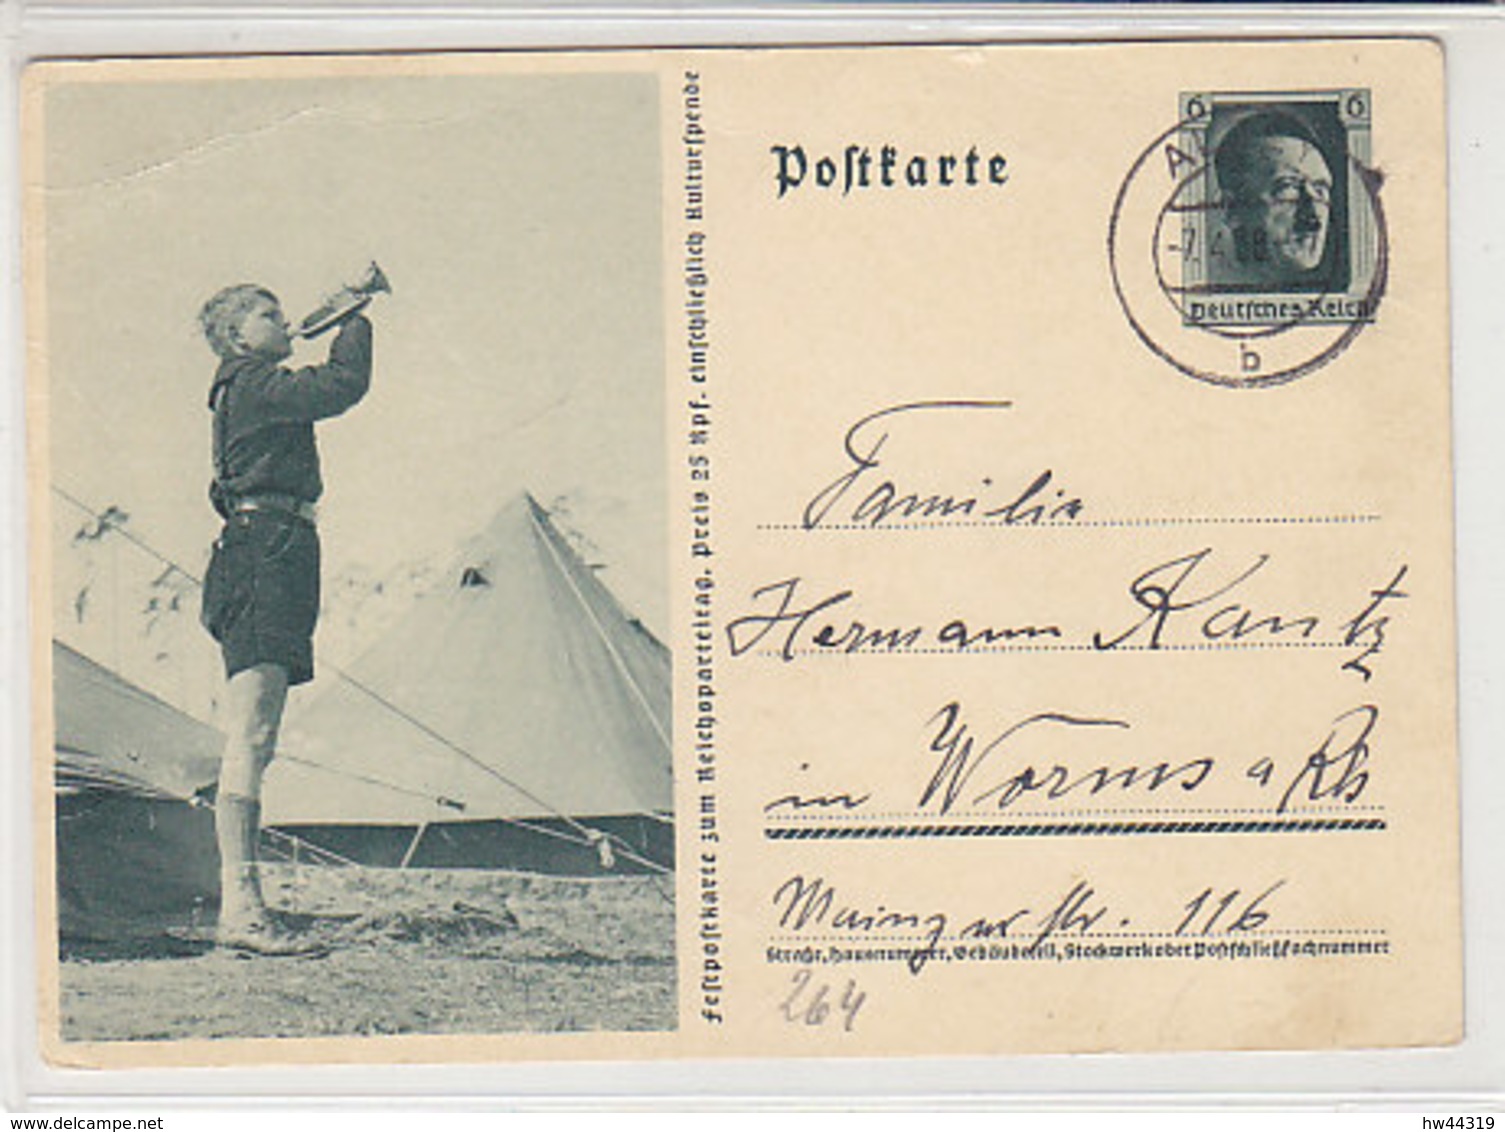 Postkarte
6 6
-7. 4 38
Deutsches Reich
b
Festpostkarte zum Reichsparteitag. Preis 25 Rpf. einschließlich Kulturspende
Familie
Hermann Kantz
in Worms a Rh
Mainzer Str. 116
Straße, Hausnummer, Gebäudeteil, Stockwerk oder Postschließfachnummer
264
www.delcampe.net
hw44319